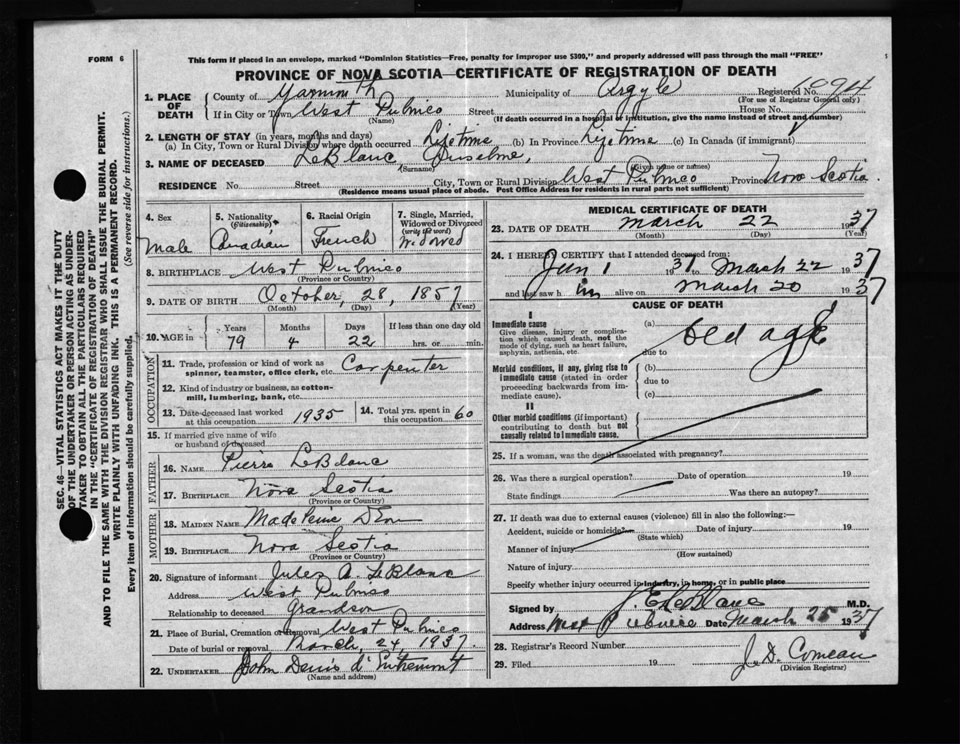 FORM 6
This form if placed in an envelope, marked "Dominion Statistics—Free, penalty for improper use $300," and properly addressed will pass through the mail "FREE"
PROVINCE OF NOVA SCOTIA—CERTIFICATE OF REGISTRATION OF DEATH
SEC. 46—VITAL STATISTICS ACT MAKES IT THE DUTY
OF THE UNDERTAKER OR PERSON ACTING AS UNDER-
TAKER TO OBTAIN ALL THE PARTICULARS REQUIRED
IN THE "CERTIFICATE OF REGISTRATION OF DEATH"
AND TO FILE THE SAME WITH THE DIVISION REGISTRAR WHO SHALL ISSUE THE BURIAL PERMIT.
WRITE PLAINLY WITH UNFADING INK. THIS IS A PERMANENT RECORD.
Every item of information should be carefully supplied. (See reverse side for instructions.)
1. PLACE OF DEATH County of Yarmouth Municipality of Argyle Registered No. 1094
(For use of Registrar General only)
If in City or Town West Pubnico Street House No.
(Name) (If death occurred in a hospital or institution, give the name instead of street and number)
2. LENGTH OF STAY (in years, months and days)
(a) In City, Town or Rural Division where death occurred Lifetime (b) In Province Lifetime (c) In Canada (if immigrant)
3. NAME OF DECEASED LeBlanc,
(Surname) (Given name or names)
RESIDENCE No. Street City, Town or Rural Division West Pubnico Province Nova Scotia.
(Residence means usual place of abode. Post Office Address for residents in rural parts not sufficient)
4. Sex Male
5. Nationality (Citizenship) Canadian
6. Racial Origin French
7. Single, Married, Widowed or Divorced (write the word) Widowed
8. BIRTHPLACE West Pubnico
(Province or Country)
9. DATE OF BIRTH October, 28, 1857
(Month) (Day) (Year)
10. AGE in Years 79 Months 4 Days 22 If less than one day old hrs. or min.
OCCUPATION
11. Trade, profession or kind of work as spinner, teamster, office clerk, etc. Carpenter
12. Kind of industry or business, as cotton-mill, lumbering, bank, etc.
13. Date deceased last worked at this occupation 1935 14. Total yrs. spent in this occupation 60
15. If married give name of wife or husband of deceased
FATHER
16. NAME Pierre LeBlanc
17. BIRTHPLACE Nova Scotia
(Province or Country)
MOTHER
18. MAIDEN NAME Madeleine
19. BIRTHPLACE Nova Scotia
(Province or Country)
20. Signature of informant Jules A. LeBlanc
Address West Pubnico
Relationship to deceased Grandson
21. Place of Burial, Cremation or Removal West Pubnico
Date of burial or removal March, 24, 1937.
22. UNDERTAKER John Denis d'Entremont
(Name and address)
MEDICAL CERTIFICATE OF DEATH
23. DATE OF DEATH March 22 1937
(Month) (Day) (Year)
24. I HEREBY CERTIFY that I attended deceased from:
Jan 1 1937 to March 22 1937
and last saw him alive on March 20 1937
CAUSE OF DEATH
I
Immediate cause
Give disease, injury or complication which caused death, not the mode of dying, such as heart failure, asphyxia, asthenia, etc.
(a) old age
due to
Morbid conditions, if any, giving rise to immediate cause (stated in order proceeding backwards from immediate cause).
(b)
due to
(c)
II
Other morbid conditions (if important) contributing to death but not causally related to immediate cause.
25. If a woman, was the death associated with pregnancy?
26. Was there a surgical operation? Date of operation 19
State findings Was there an autopsy?
27. If death was due to external causes (violence) fill in also the following:—
Accident, suicide or homicide? Date of injury 19
(State which)
Manner of injury
(How sustained)
Nature of injury
Specify whether injury occurred in industry, in home, or in public place
Signed by J. E. LeBlanc M.D.
Address West Pubnico Date March 25 1937
28. Registrar's Record Number
29. Filed 19 J. D. Comeau
(Division Registrar)